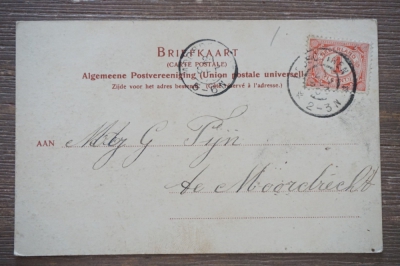 BRIEFKAART
(CARTE POSTALE)
Algemeene Postvereeniging (Union postale universelle)
Zijde voor het adres bestemd. réservé à l'adresse.)
2-3N
AAN G Tijn
te Moordrecht